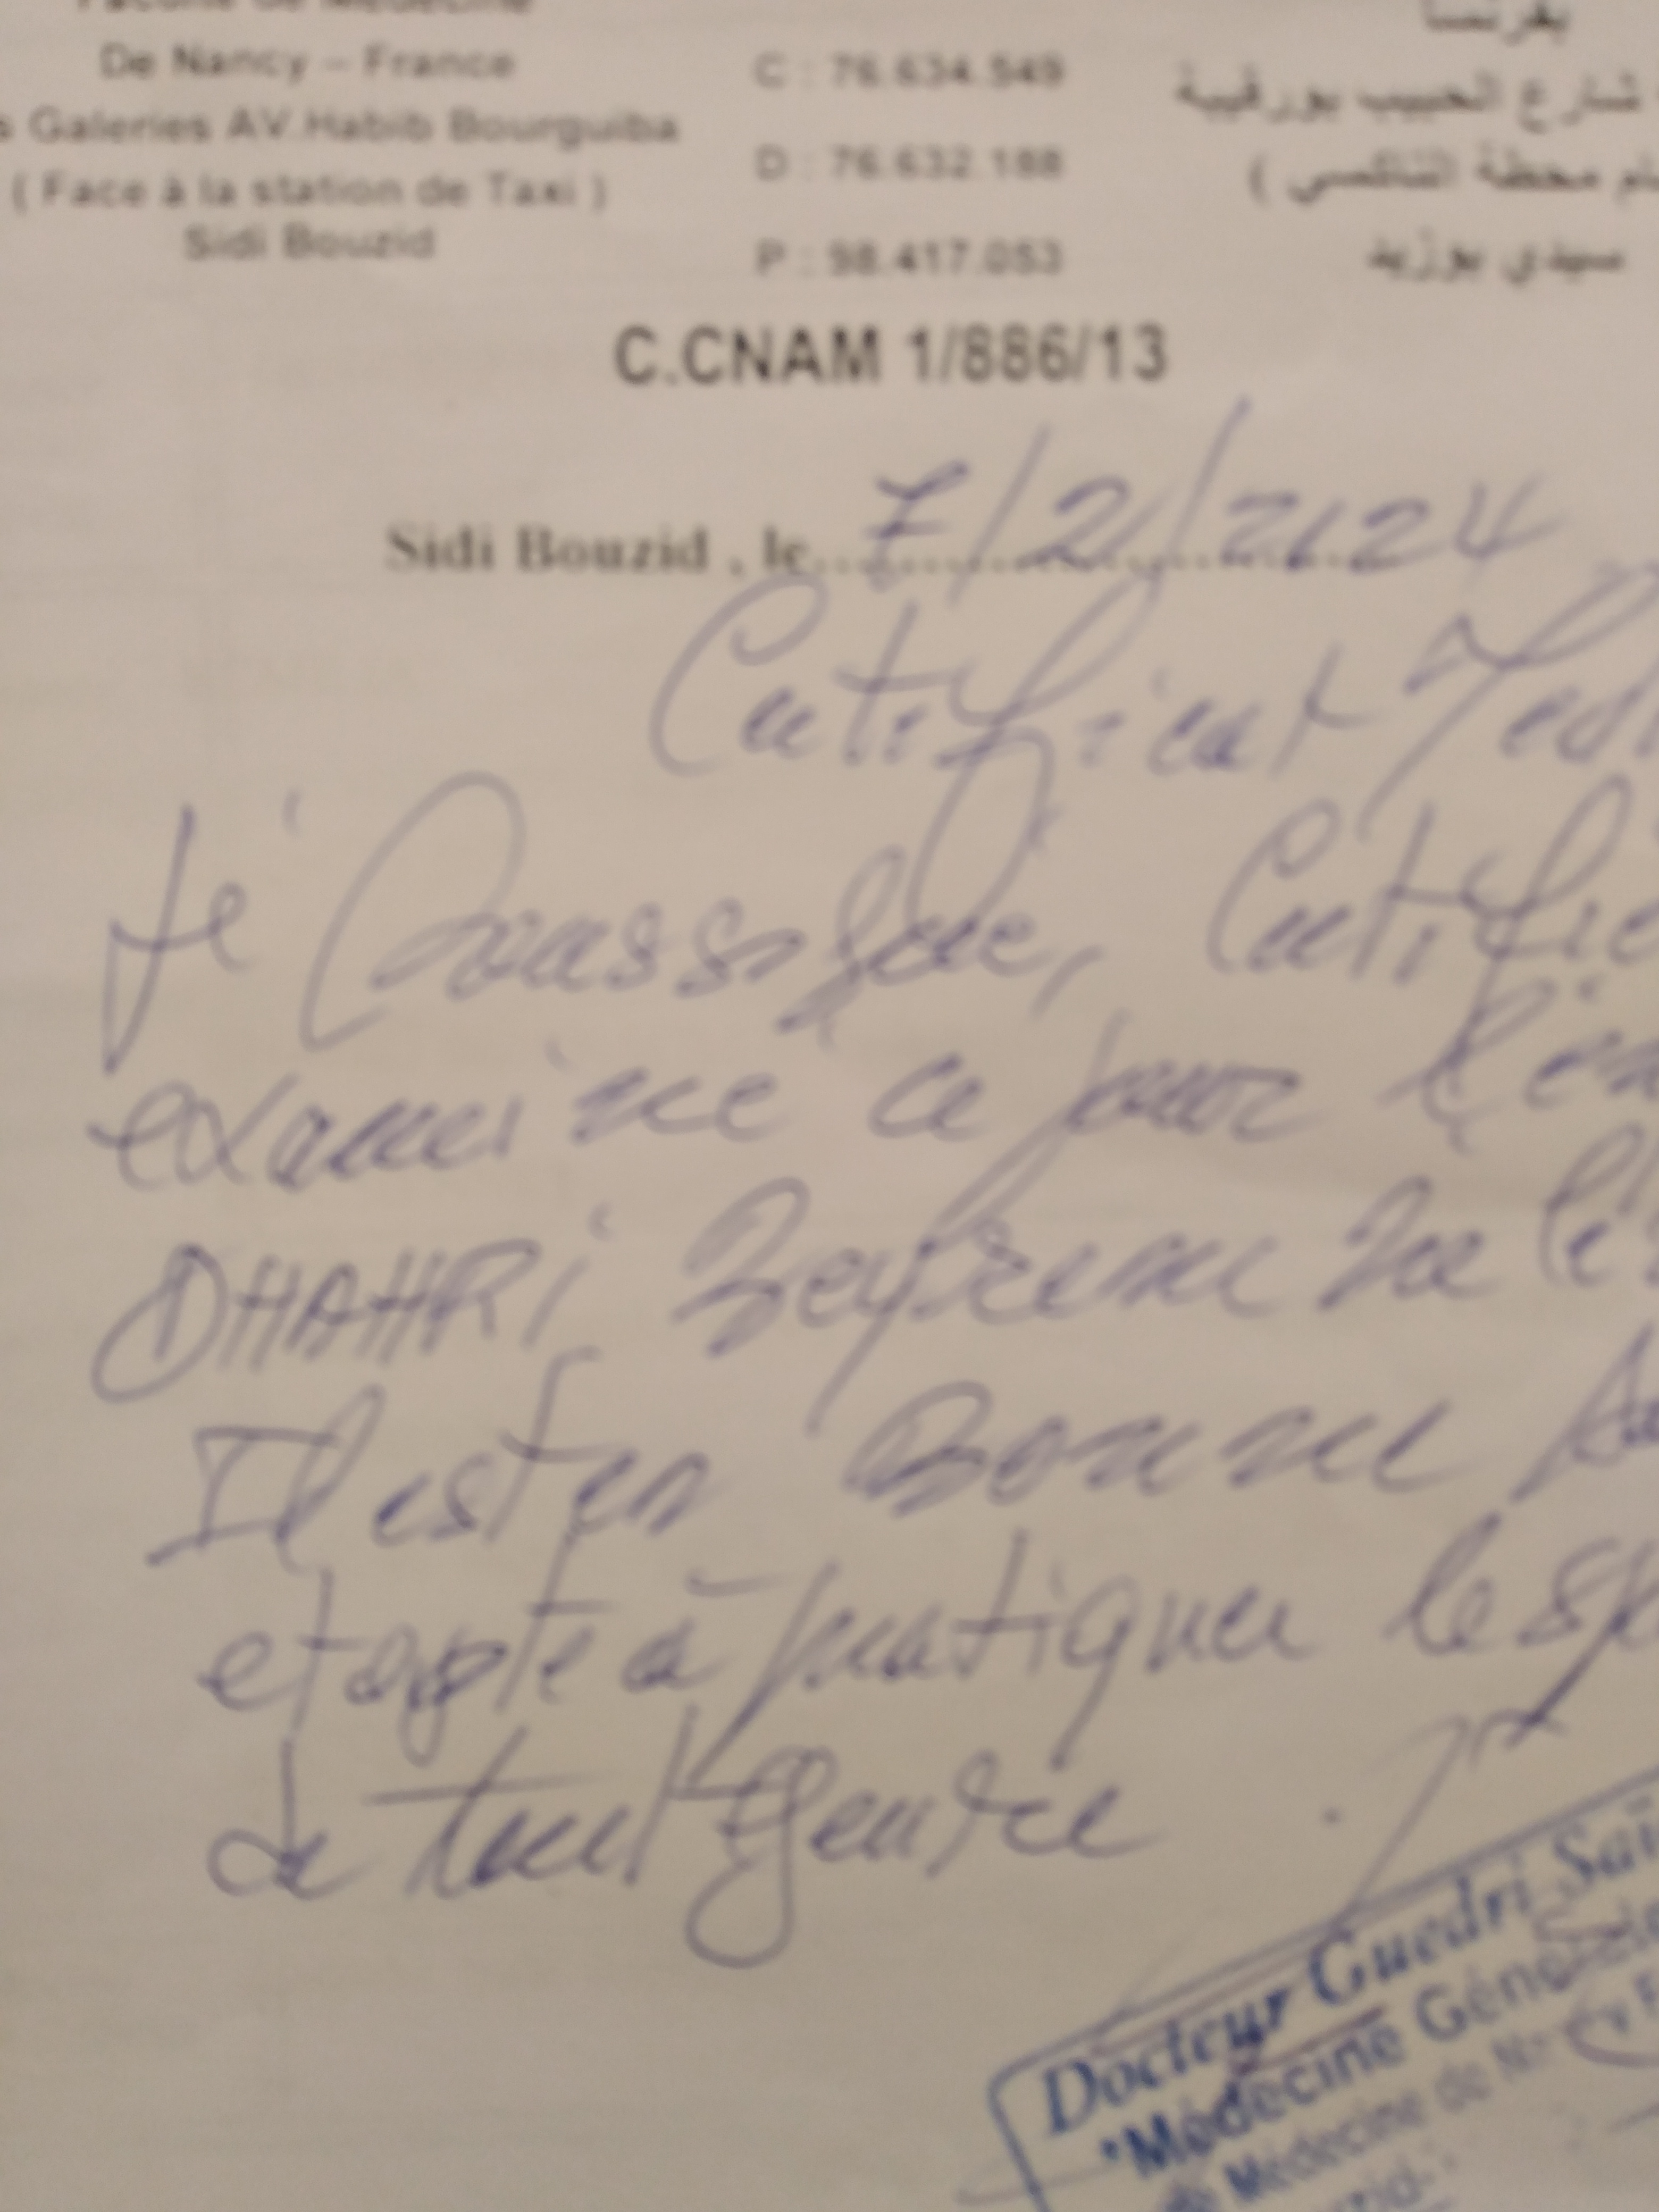 De Nancy – France
Galeries AV.Habib Bourguiba
( Face à la station de Taxi )
Sidi Bouzid
C : 76.634.549
D : 76.632.188
P : 98.417.053
بفرنسا
شارع الحبيب بورقيبة
محطة التاكسي )
سيدي بوزيد
C.CNAM 1/886/13
Sidi Bouzid , le 7/2/2024
Certificat
Je Soussigné, Certifie
examiné ce jour
DHAHRi
Il est en Bonne
et apte à pratiquer le
de tout genre
Docteur Guedri
Médecine Générale
Médecine de